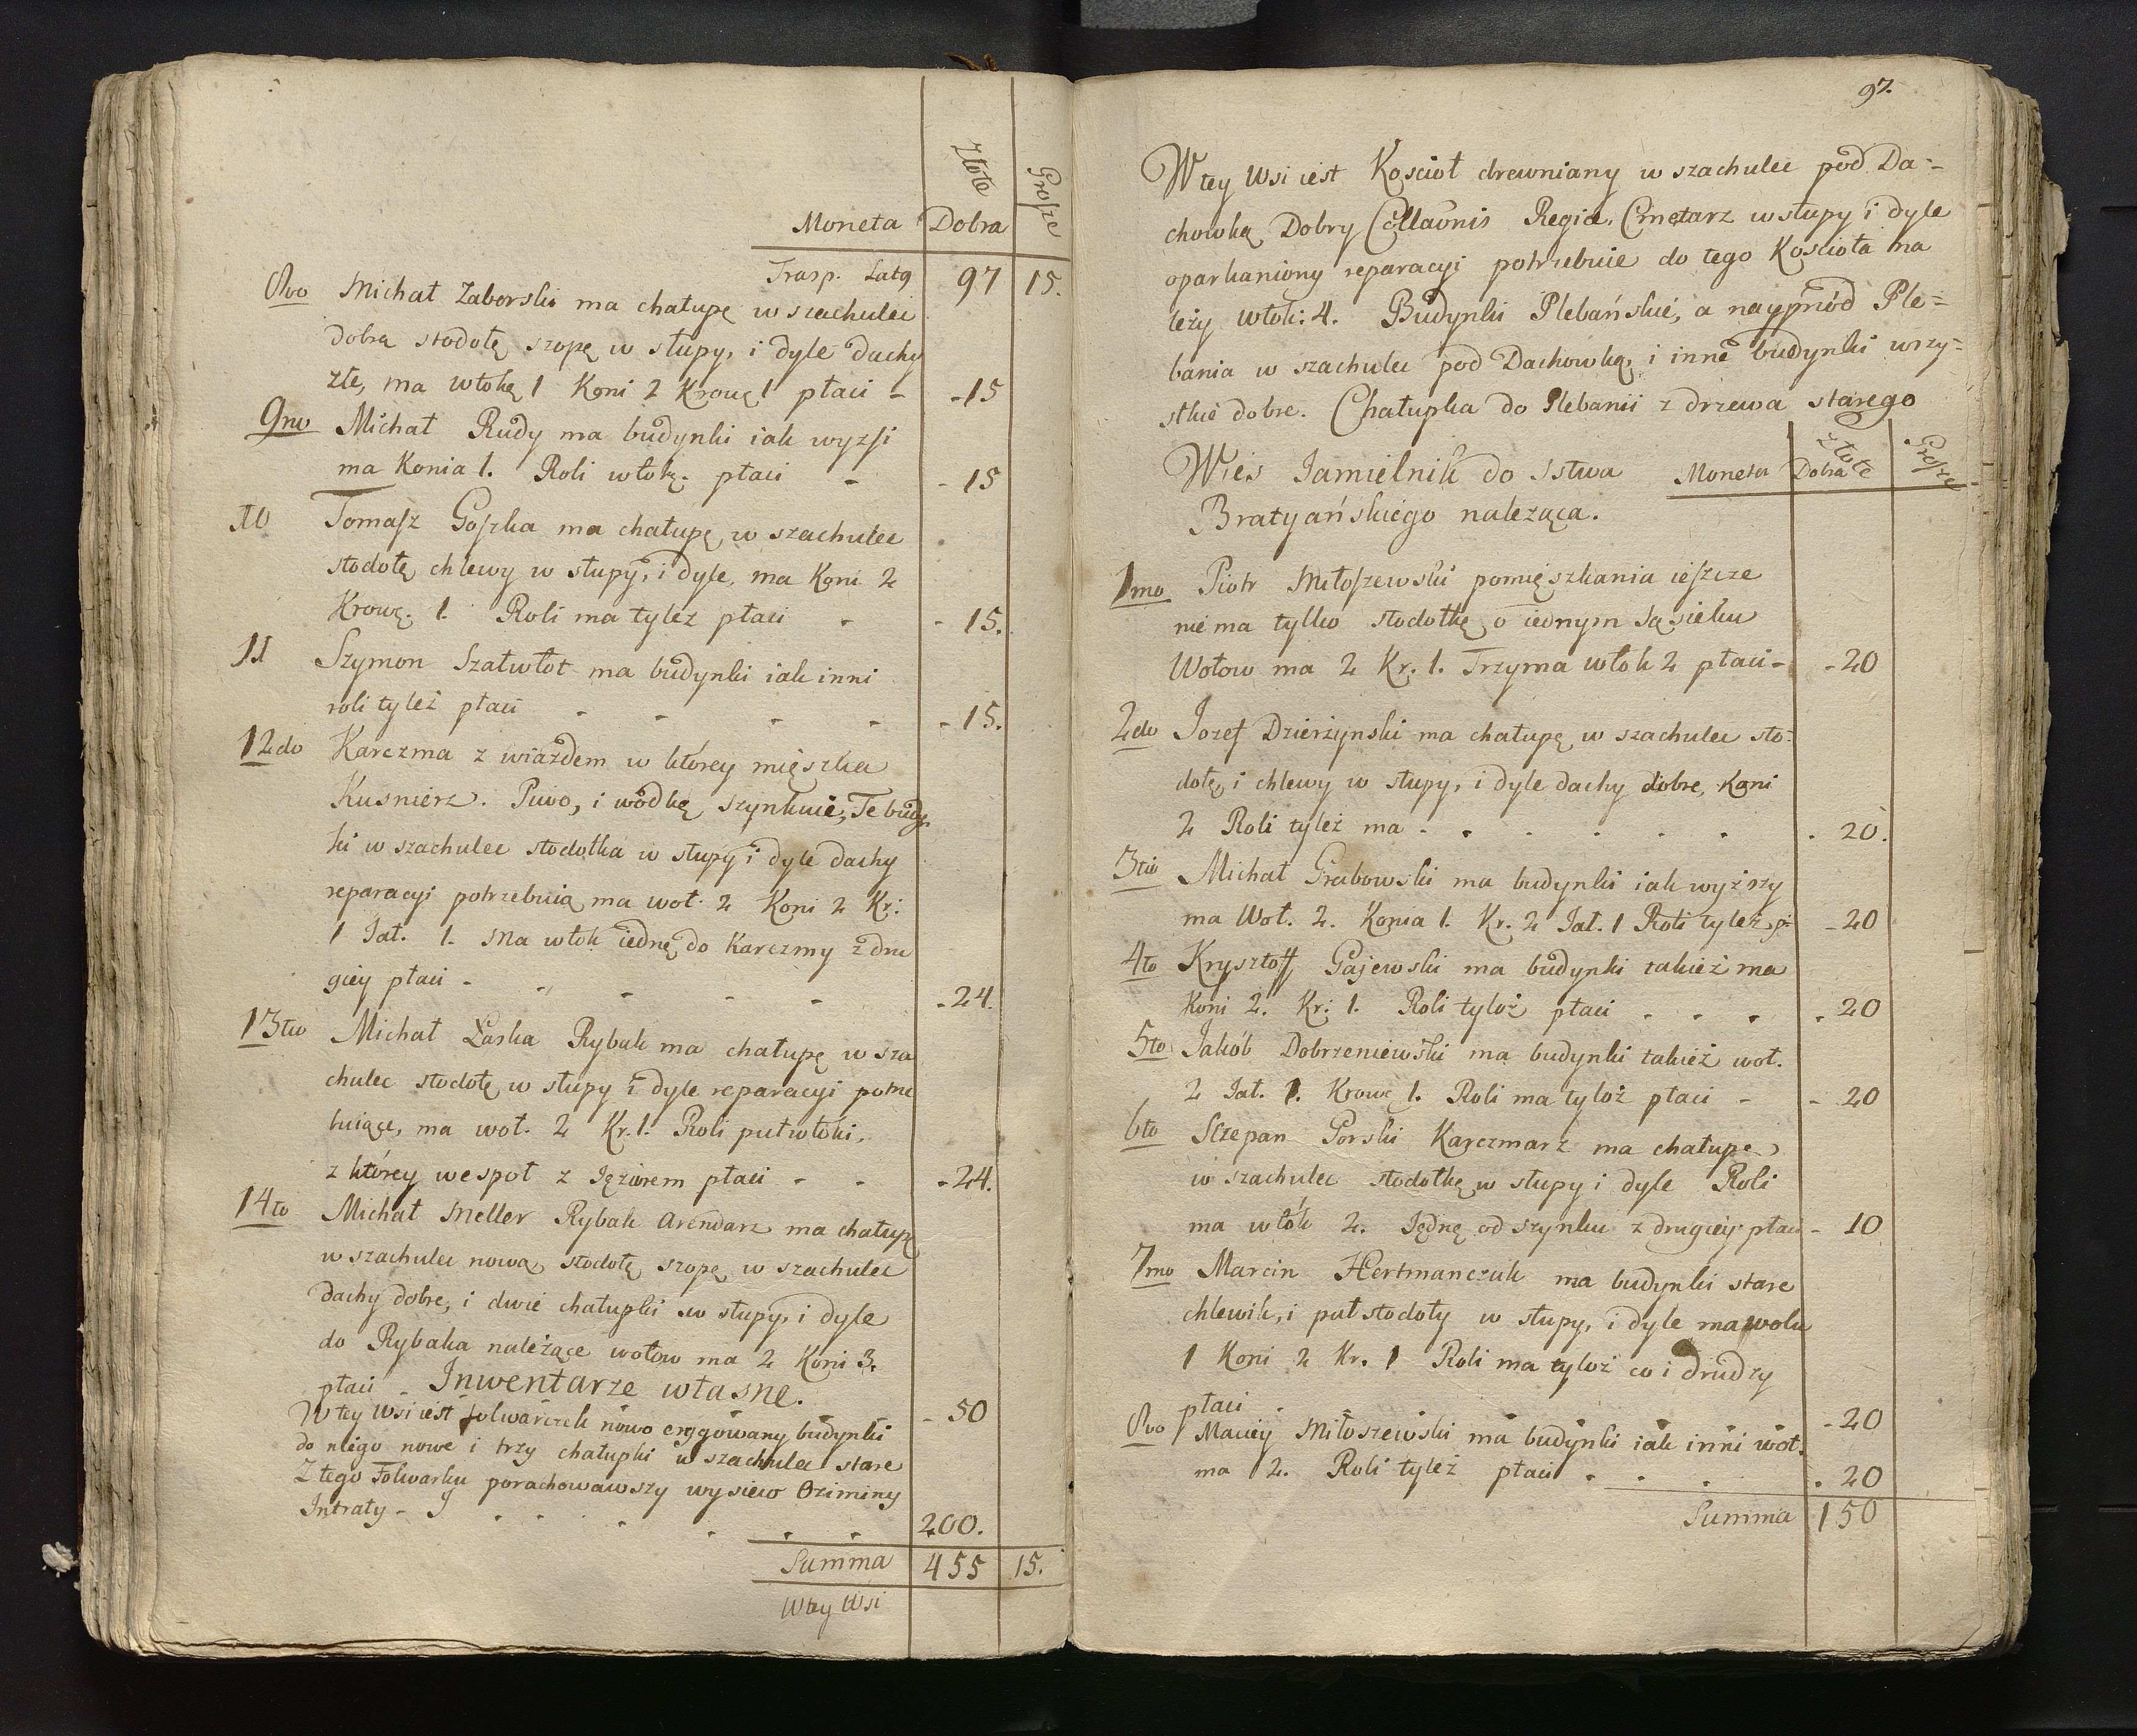 Złote
Grosze
Moneta Dobra
Trasp. Latq 97 15.
8vo Michał Zaborski ma chałupę w szachulec
dobrą stodołę szopę w słupy, i dyle dachy
złe, ma włokę 1 Koni 2 Krowę 1 płaci - - 15
9no Michał Rudy ma budynki iak wyzsi
ma Konia 1. Roli włokę. płaci - - 15
10 Tomasz Goszka ma chałupę w szachulec
stodołę chlewy w słupy, i dyle, ma Koni 2
Krowę. 1. Roli ma tyleż płaci - - 15.
11 Szymon Szałwłot ma budynki iak inni
roli tyleż płaci - - - - - 15.
12do Karczma z wiazdem w ktorey mięszka
Kusnierz. Piwo, i wodkę szynkuie, Te budyn
ki w szachulec stodołka w słupy i dyle dachy
reparacyi potrzebuią ma woł. 2 Koni 2 Kr:
1 Jał. 1. Ma włok iednę do Karczmy z dru
giey płaci - - - - - - 24.
13tio Michał Laska Rybak ma chałupę w sza
chulec stodołę w słupy i dyle reparacyi potrze
buiące, ma woł. 2 Kr. 1. Roli pułwłoki,
z którey wespoł z Jęziorem płaci - - - 24.
14to Michał Meller Rybak Arendarz ma chałupę
w szachulec nową stodołę szopę w szachulec
dachy dobre, i dwie chałupki w słupy, i dyle
do Rybaka należące wołow ma 2 Koni 3.
płaci - - 50
Inwentarze własne.
W tey Wsi iest folwarczek nowo erygowany budynki
do niego nowe i trzy chałupki w szachulec stare
Z tego Folwarku porachowawszy wysiew Oziminy
Intraty - J - - - - - - 200.
Summa 455 15.
W tey Wsi
97.
W tey Wsi iest Kościoł drewniany w szachulec pod Da=
chowką Dobry Collaonis Regiae. Cmętarz w słupy i dyle
oparkaniony reparacyi potrzebuie do tego Kościoła na
leży włok: 4. Budynki Plebańskie, a nayprzód Ple=
bania w szachulec pod Dachowką, i inne budynki wszy=
stkie dobre. Chałupka do Plebanii z drzewa starego
Złote
Grosze
Wies Jamielnik do Sstwa Moneta Dobra
Bratyańskiego naleząca.
1mo Piotr Miłoszewski pomięszkania ieszcze
nie ma tylko stodołkę o iednym sąsieku
Wołow ma 2 Kr. 1. Trzyma włok 2 płaci - - 20
2do Jozef Dzierżynski ma chałupę w szachulec sto=
dołę, i chlewy w słupy, i dyle dachy dobre, Koni
2 Roli tyleż ma - - - - - - 20.
3tio Michał Grabowski ma budynki iak wyższy
ma Woł. 2. Konia 1. Kr. 2 Jał. 1 Roli tyleż pł. - 20
4to Krysztoff Gajewski ma budynki takież ma
Koni 2. Kr: 1. Roli tyloż płaci - - - - 20
5to Jakób Dobrzeniewski ma budynki takież woł.
2 Jał. 1. Krowę 1. Roli ma tyloż płaci - - 20
6to Sczepan Gorski Karczmarz ma chałupę
w szachulec stodołkę w słupy i dyle Roli
ma włók 2. Jędnę od szynku z drugiey płaci - 10
7mo Marcin Hertmanczuk ma budynki stare
chlewik, i puł stodoły w słupy, i dyle ma wołu
1 Koni 2 Kr. 1 Roli ma tyloż co i drudzy
płaci - - - - - - 20
8vo Maciey Miłoszewski ma budynki iak inni woł.
ma 2. Roli tyleż płaci - - - - 20
Summa 150